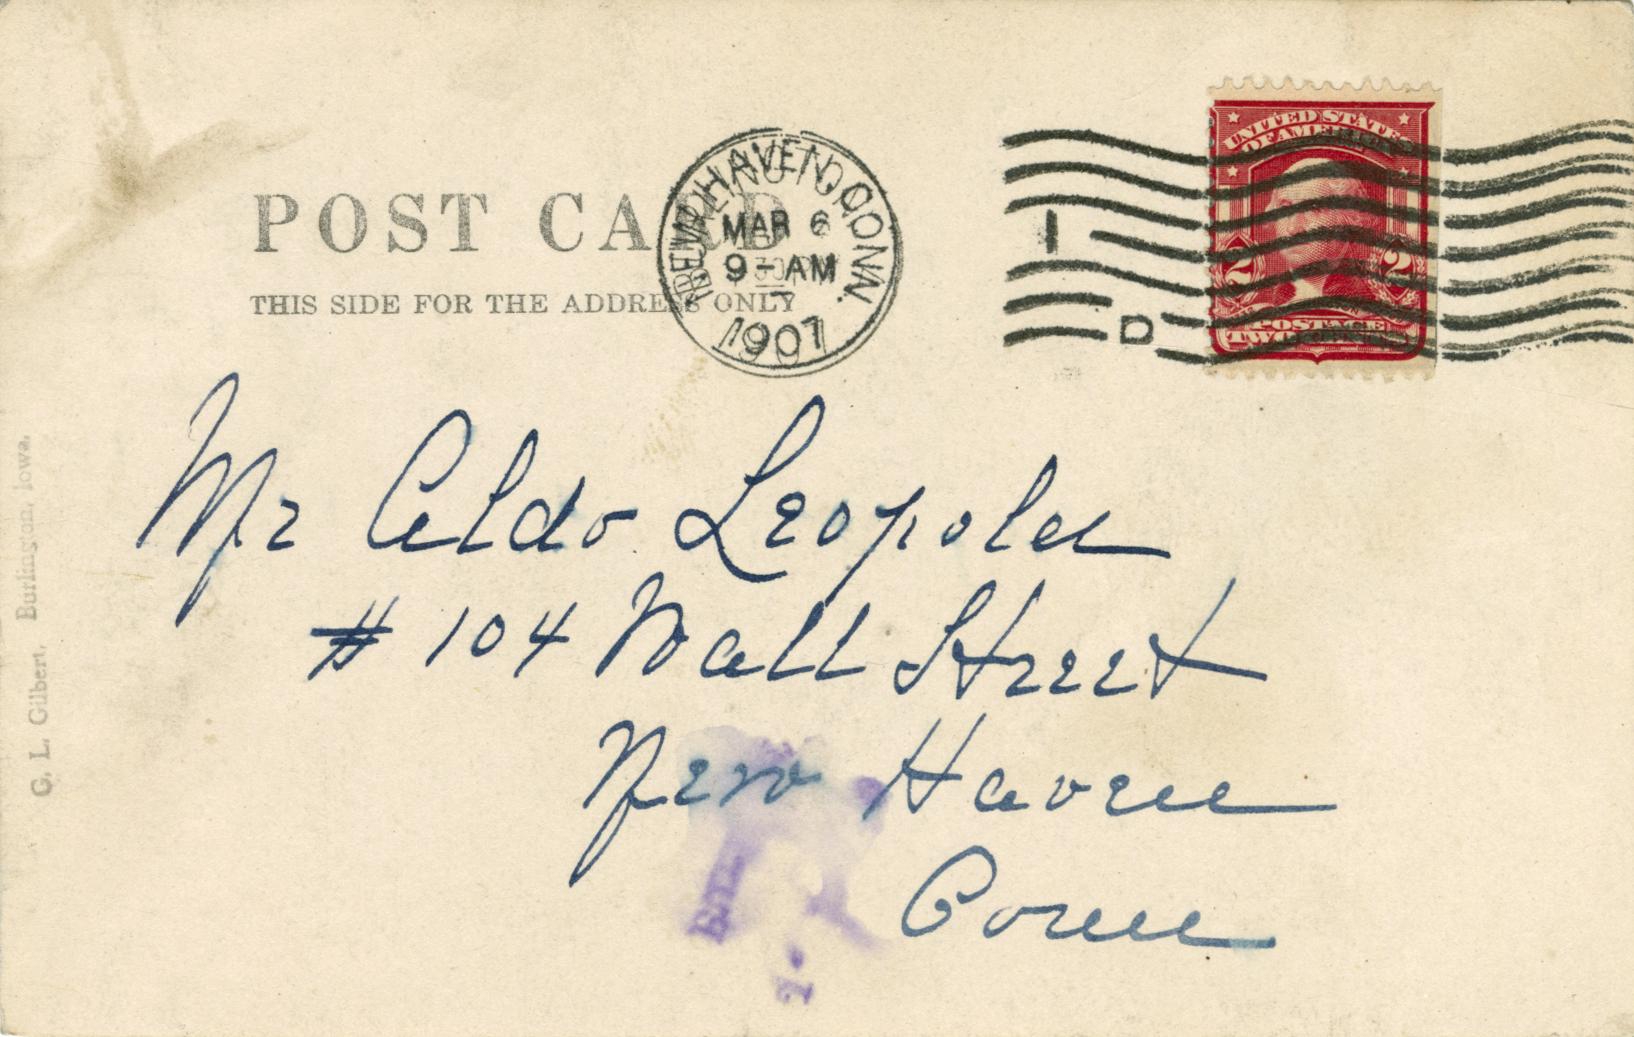 UNITED STATES
OF AMERICA
2 2
POSTAGE
TWO CENTS
NEW HAVEN CONN.
MAR 6
9 - AM
1907
1
D
POST CARD
THIS SIDE FOR THE ADDRESS ONLY
Mr Aldo Leopold
# 104 Wall Street
New Haven
Conn
G. L. Gilbert, Burlington, Iowa.